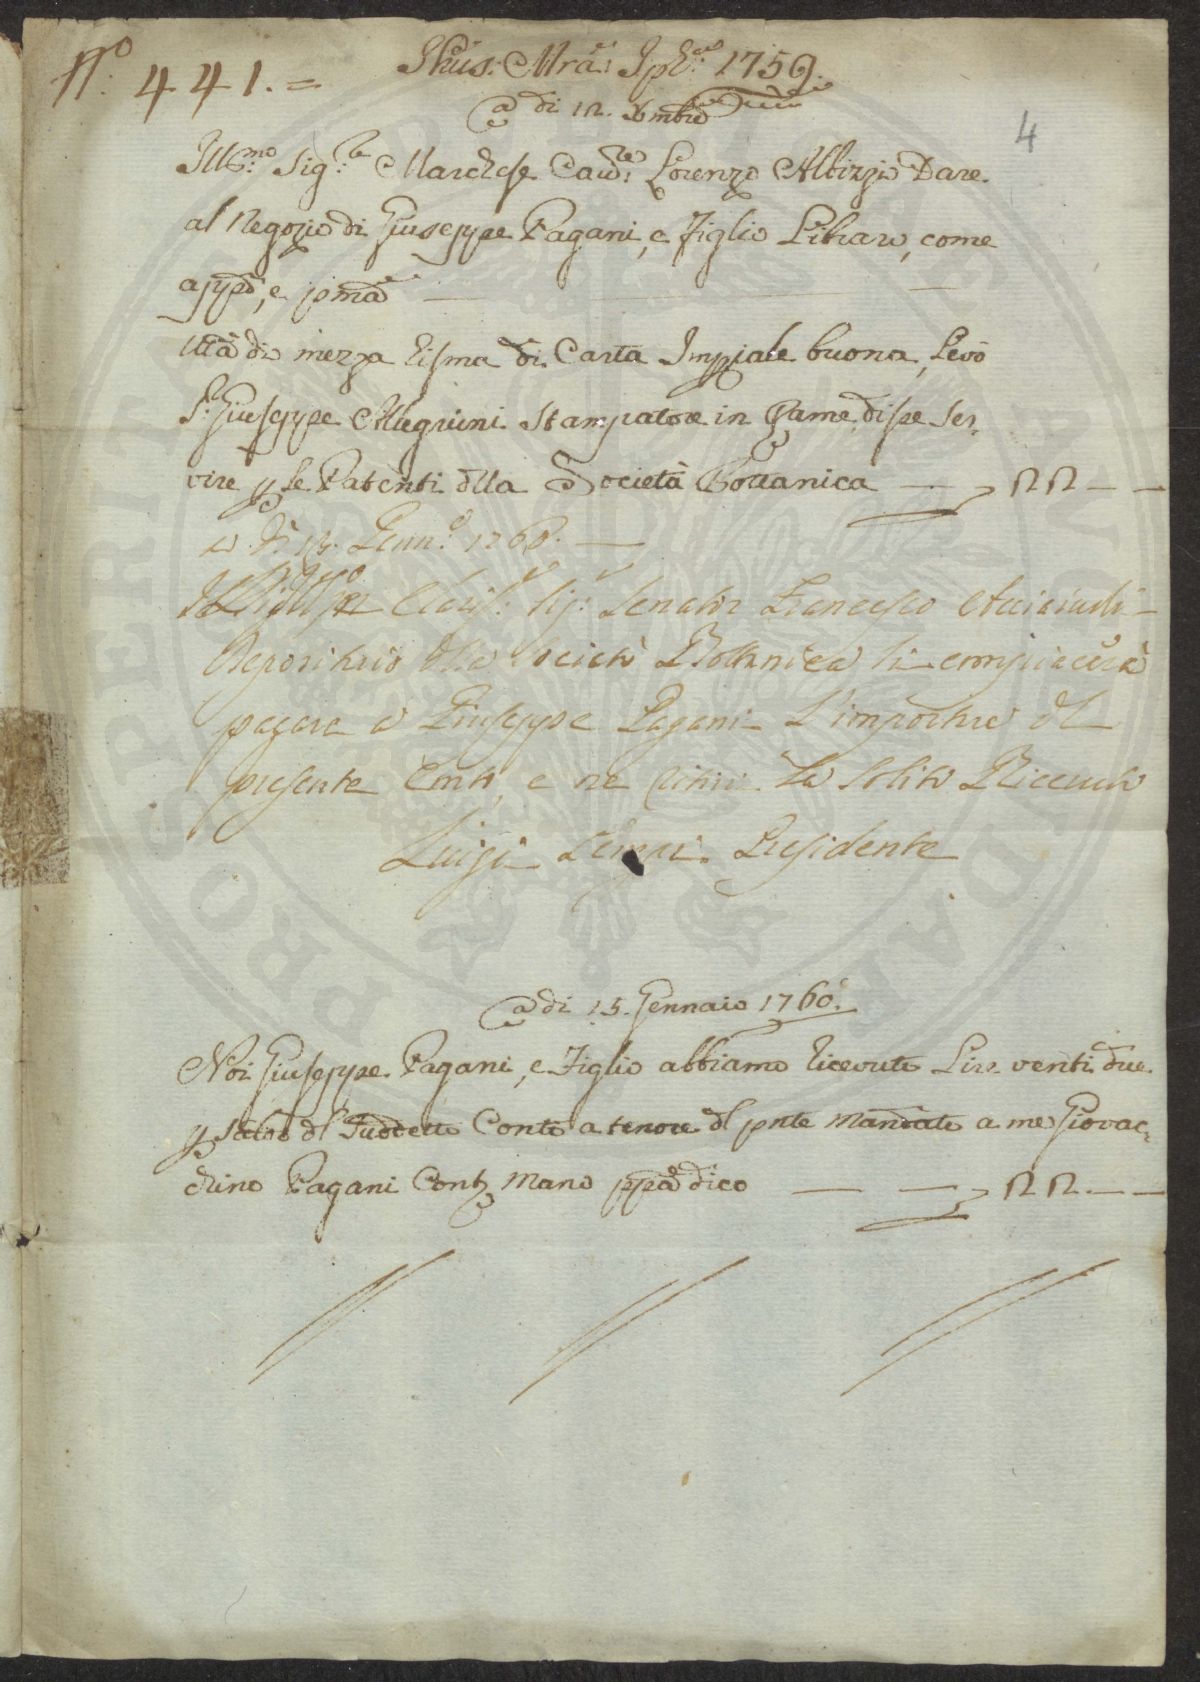 N.º 441. =
Jhus: Mra: Jph: 1759.
4
@ di 12. Xmbre
Ill:mo Sig:re Marchese Cav:re Lorenzo Albizzi Dare
al Negozio di Giuseppe Pagani, e Figlio Libraro, come
appo, e pma
Uta di mezza risma di Carta Impiale buona, Levò
Sr. Giuseppe Allegrini Stampatore in Rame, disse ser-
vire p le Patenti dlla Società Bottanica — 22 — —
a dì 13. Genn:o 1760. —
Claris: Sig:r Senator Francesco Acciaiuoli
Depositario dlla Società Bottanica si compiacerà
pagare a Giuseppe Pagani l'importare dl
presente Conto, e ne ritiri la solita Ricevuta
Luigi Tempi Presidente
@ di 15. Gennaio 1760.
Noi Giuseppe Pagani, e Figlio abbiamo ricevuto Lire venti due
p saldo dl suddetto Conto a tenore dl pnte Mandato a me Giovac-
chino Pagani Cont. mano ppa dico — — 22 — —
PROSPERITÀ
AVGVRANDA